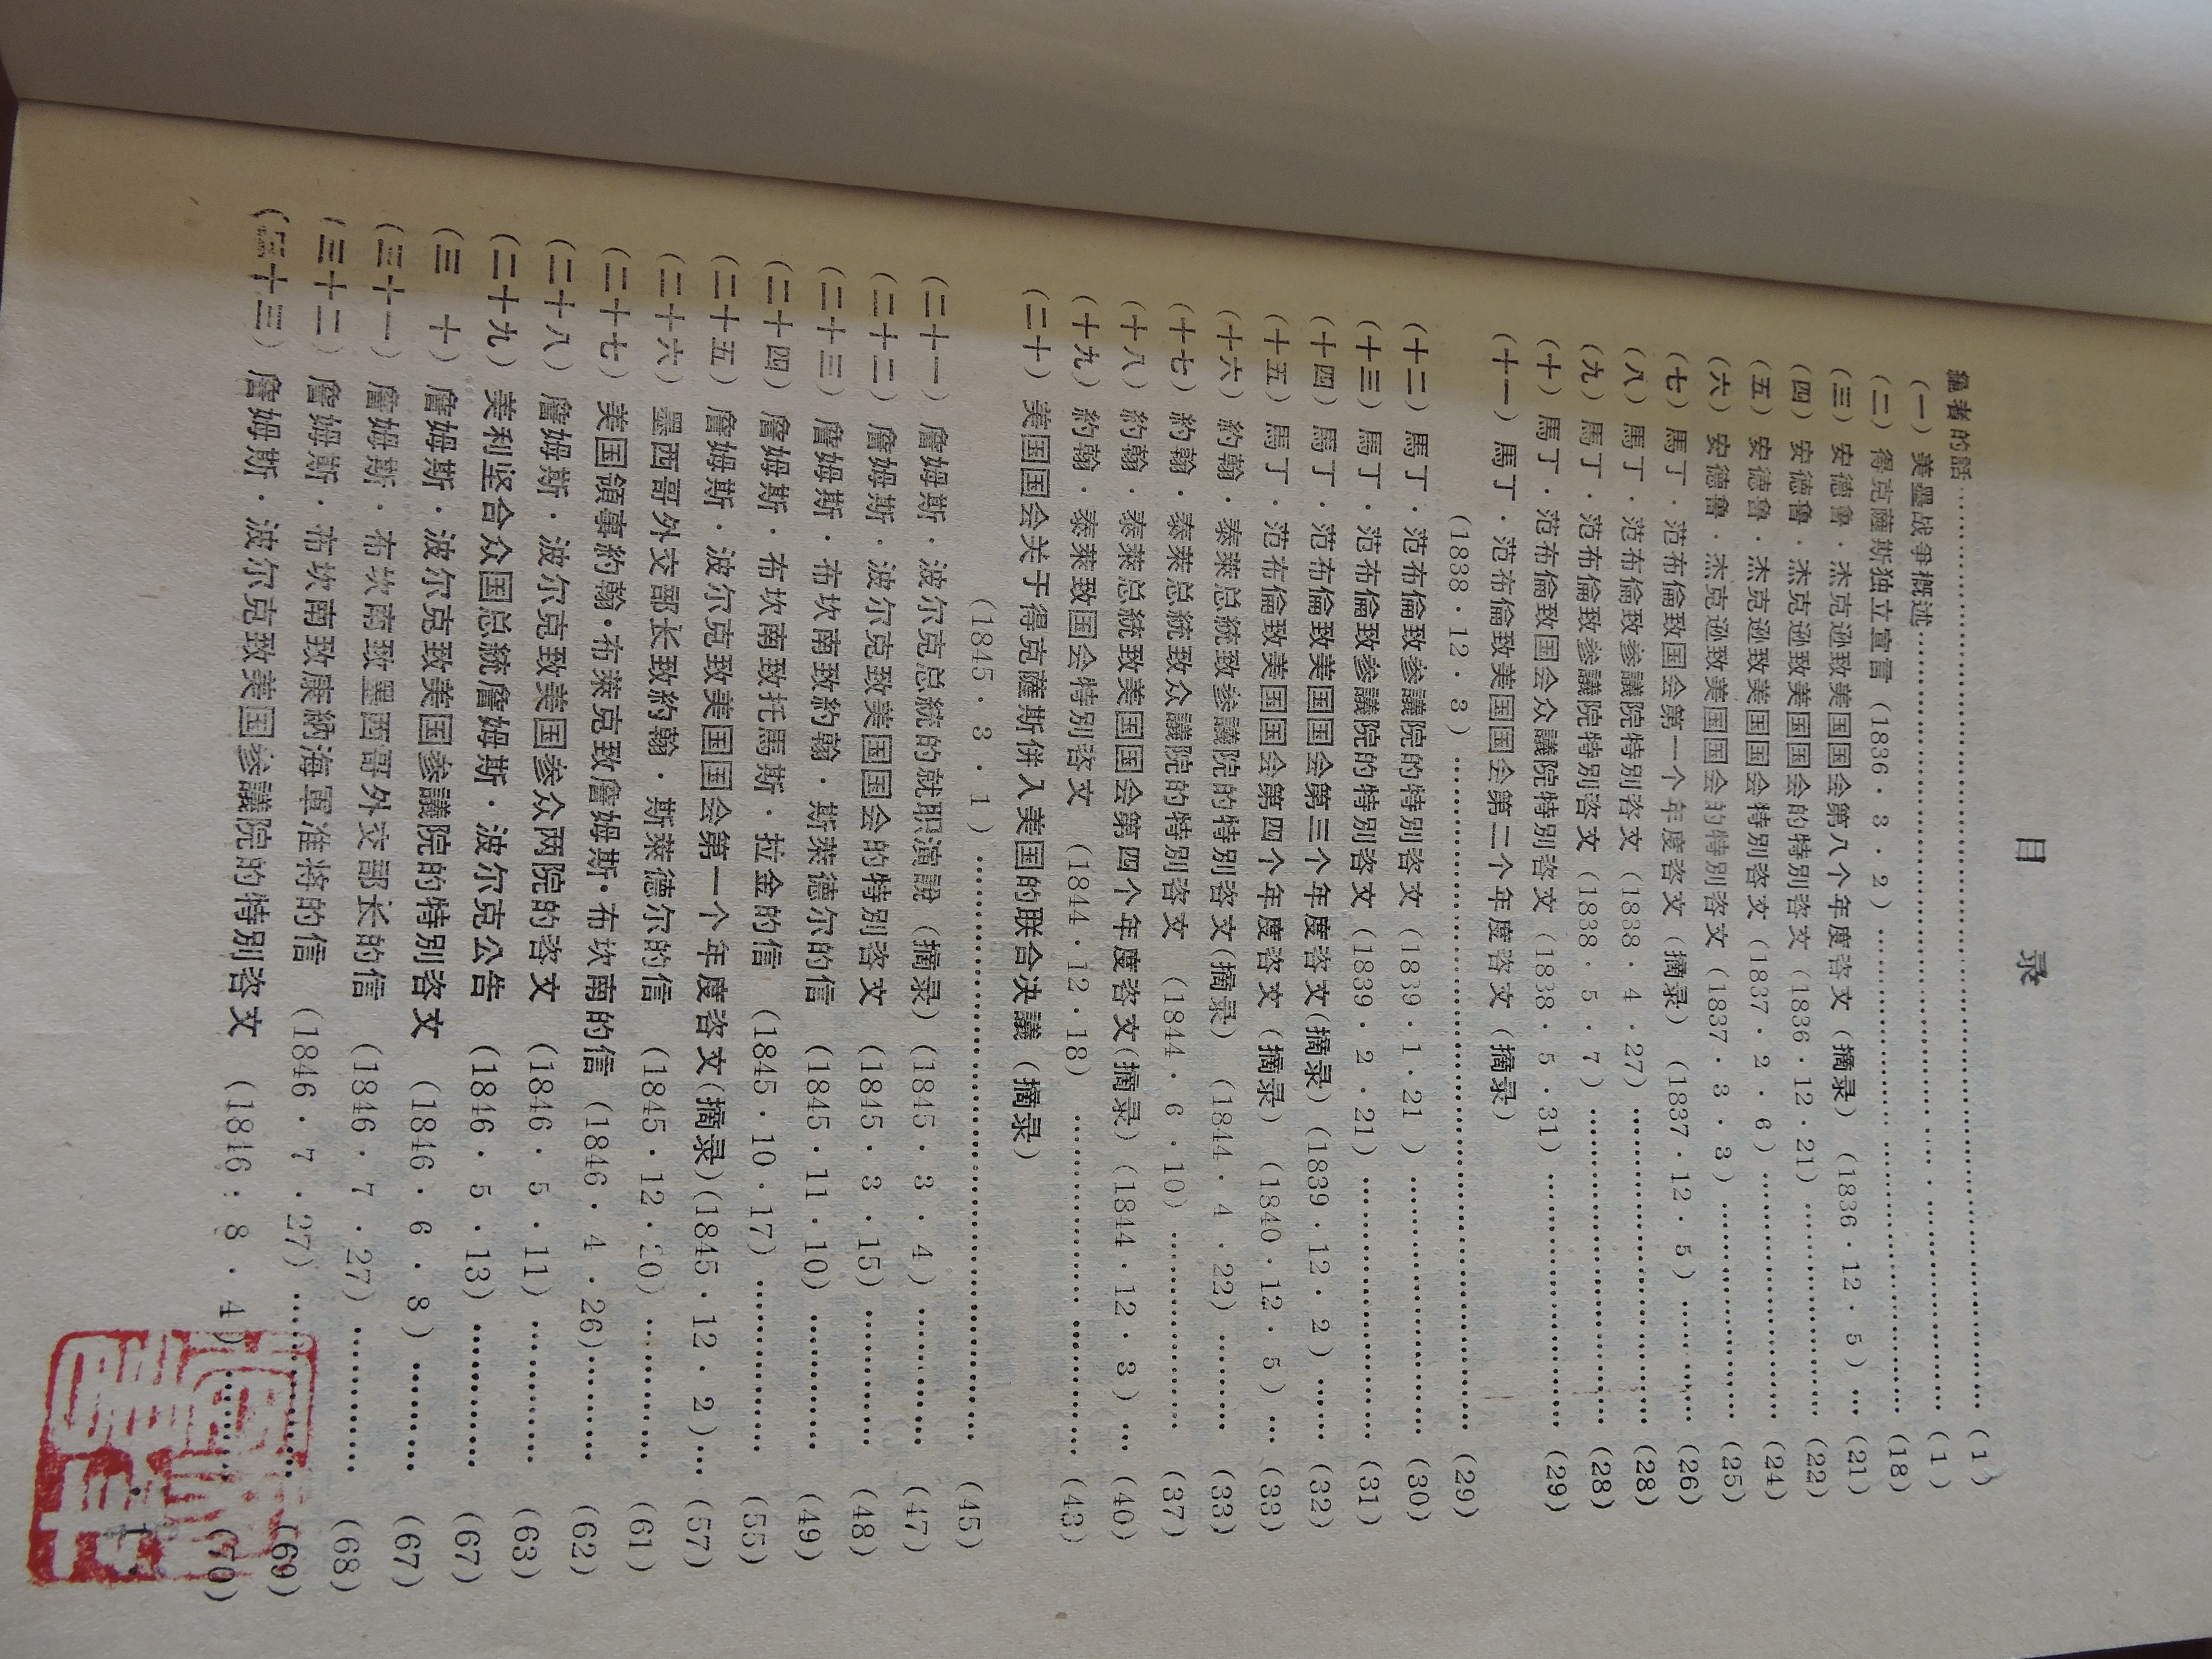 目　录
編者的話……………………………………(1)
(一) 美墨战爭概述……………………………………(1)
(二) 得克薩斯独立宣言 (1836·3·2) ……………………………(18)
(三) 安德魯·杰克逊致美国国会第八个年度咨文 (摘录) (1836·12·5) …(21)
(四) 安德魯·杰克逊致美国国会的特別咨文 (1836·12·21) …………………(22)
(五) 安德魯·杰克逊致美国国会特別咨文 (1837·2·6) …………………(24)
(六) 安德魯·杰克逊致美国国会的特別咨文 (1837·3·3) …………………(25)
(七) 馬丁·范布倫致国会第一个年度咨文 (摘录) (1837·12·5) …………(26)
(八) 馬丁·范布倫致参議院特別咨文 (1838·4·27) ………………………(28)
(九) 馬丁·范布倫致参議院特別咨文 (1838·5·7) ………………………(28)
(十) 馬丁·范布倫致国会众議院特別咨文 (1838·5·31) ……………………(29)
(十一) 馬丁·范布倫致美国国会第二个年度咨文 (摘录)
(1838·12·3) ……………………………………………………(29)
(十二) 馬丁·范布倫致参議院的特別咨文 (1839·1·21) ……………………(30)
(十三) 馬丁·范布倫致参議院的特別咨文 (1839·2·21) ……………………(31)
(十四) 馬丁·范布倫致美国国会第三个年度咨文(摘录) (1839·12·2) ……(32)
(十五) 馬丁·范布倫致美国国会第四个年度咨文 (摘录) (1840·12·5) …(33)
(十六) 約翰·泰莱总統致参議院的特別咨文(摘录) (1844·4·22) ………(33)
(十七) 約翰·泰莱总統致众議院的特別咨文 (1844·6·10) ………………(37)
(十八) 約翰·泰莱总統致美国国会第四个年度咨文(摘录) (1844·12·3) …(40)
(十九) 約翰·泰莱致国会特別咨文 (1844·12·18) …………………………(43)
(二十) 美国国会关于得克薩斯併入美国的联合决議 (摘录)
(1845·3·1) ………………………………………………(45)
(二十一) 詹姆斯·波尔克总統的就职演說 (摘录) (1845·3·4) …………(47)
(二十二) 詹姆斯·波尔克致美国国会的特別咨文 (1845·3·15) …………(48)
(二十三) 詹姆斯·布坎南致約翰·斯莱德尔的信 (1845·11·10) …………(49)
(二十四) 詹姆斯·布坎南致托馬斯·拉金的信 (1845·10·17) ……………(55)
(二十五) 詹姆斯·波尔克致美国国会第一个年度咨文(摘录)(1845·12·2)…(57)
(二十六) 墨西哥外交部长致約翰·斯莱德尔的信 (1845·12·20) …………(61)
(二十七) 美国領事約翰·布莱克致詹姆斯·布坎南的信 (1846·4·26)………(62)
(二十八) 詹姆斯·波尔克致美国参众两院的咨文 (1846·5·11) …………(63)
(二十九) 美利坚合众国总統詹姆斯·波尔克公告 (1846·5·13) …………(67)
(三　十) 詹姆斯·波尔克致美国参議院的特別咨文 (1846·6·8) ………(67)
(三十一) 詹姆斯·布坎南致墨西哥外交部长的信 (1846·7·27) …………(68)
(三十二) 詹姆斯·布坎南致康納海軍准将的信 (1846·7·27) ……………(69)
(三十三) 詹姆斯·波尔克致美国参議院的特別咨文 (1846·8·4) ………(70)
·1·